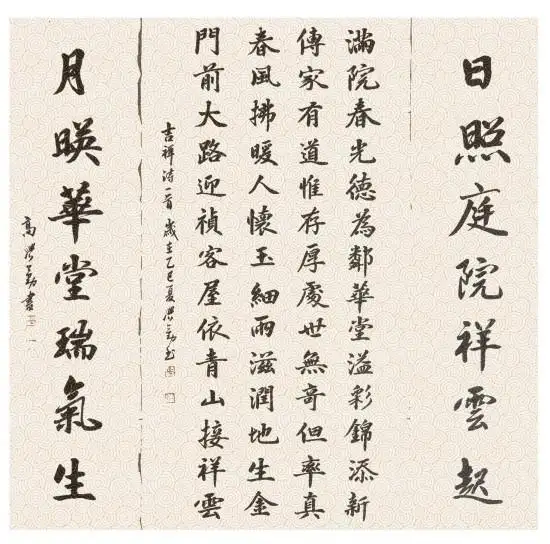 日照庭院祥雲起
滿院春光德為鄰華堂溢彩錦添新
傳家有道惟存厚處世無奇但率真
春風拂暖人懷玉細雨滋潤地生金
門前大路迎禎客屋依青山接祥雲
吉祥詩一首歲在乙巳夏洪勤書
月暎華堂瑞氣生
高洪勤書